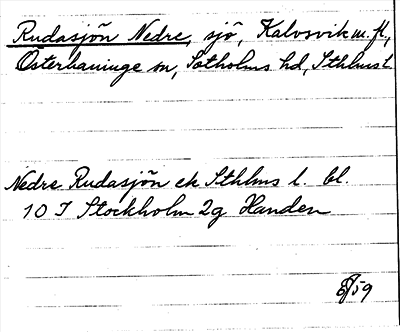 Rudasjön Nedre, sjö, Kalvsvik m. fl,
Österhaninge sn, Sotholms hd, Sthlms l.
Nedre Rudasjön ek Sthlms l. bl.
10 I Stockholm 2g Handen
/59